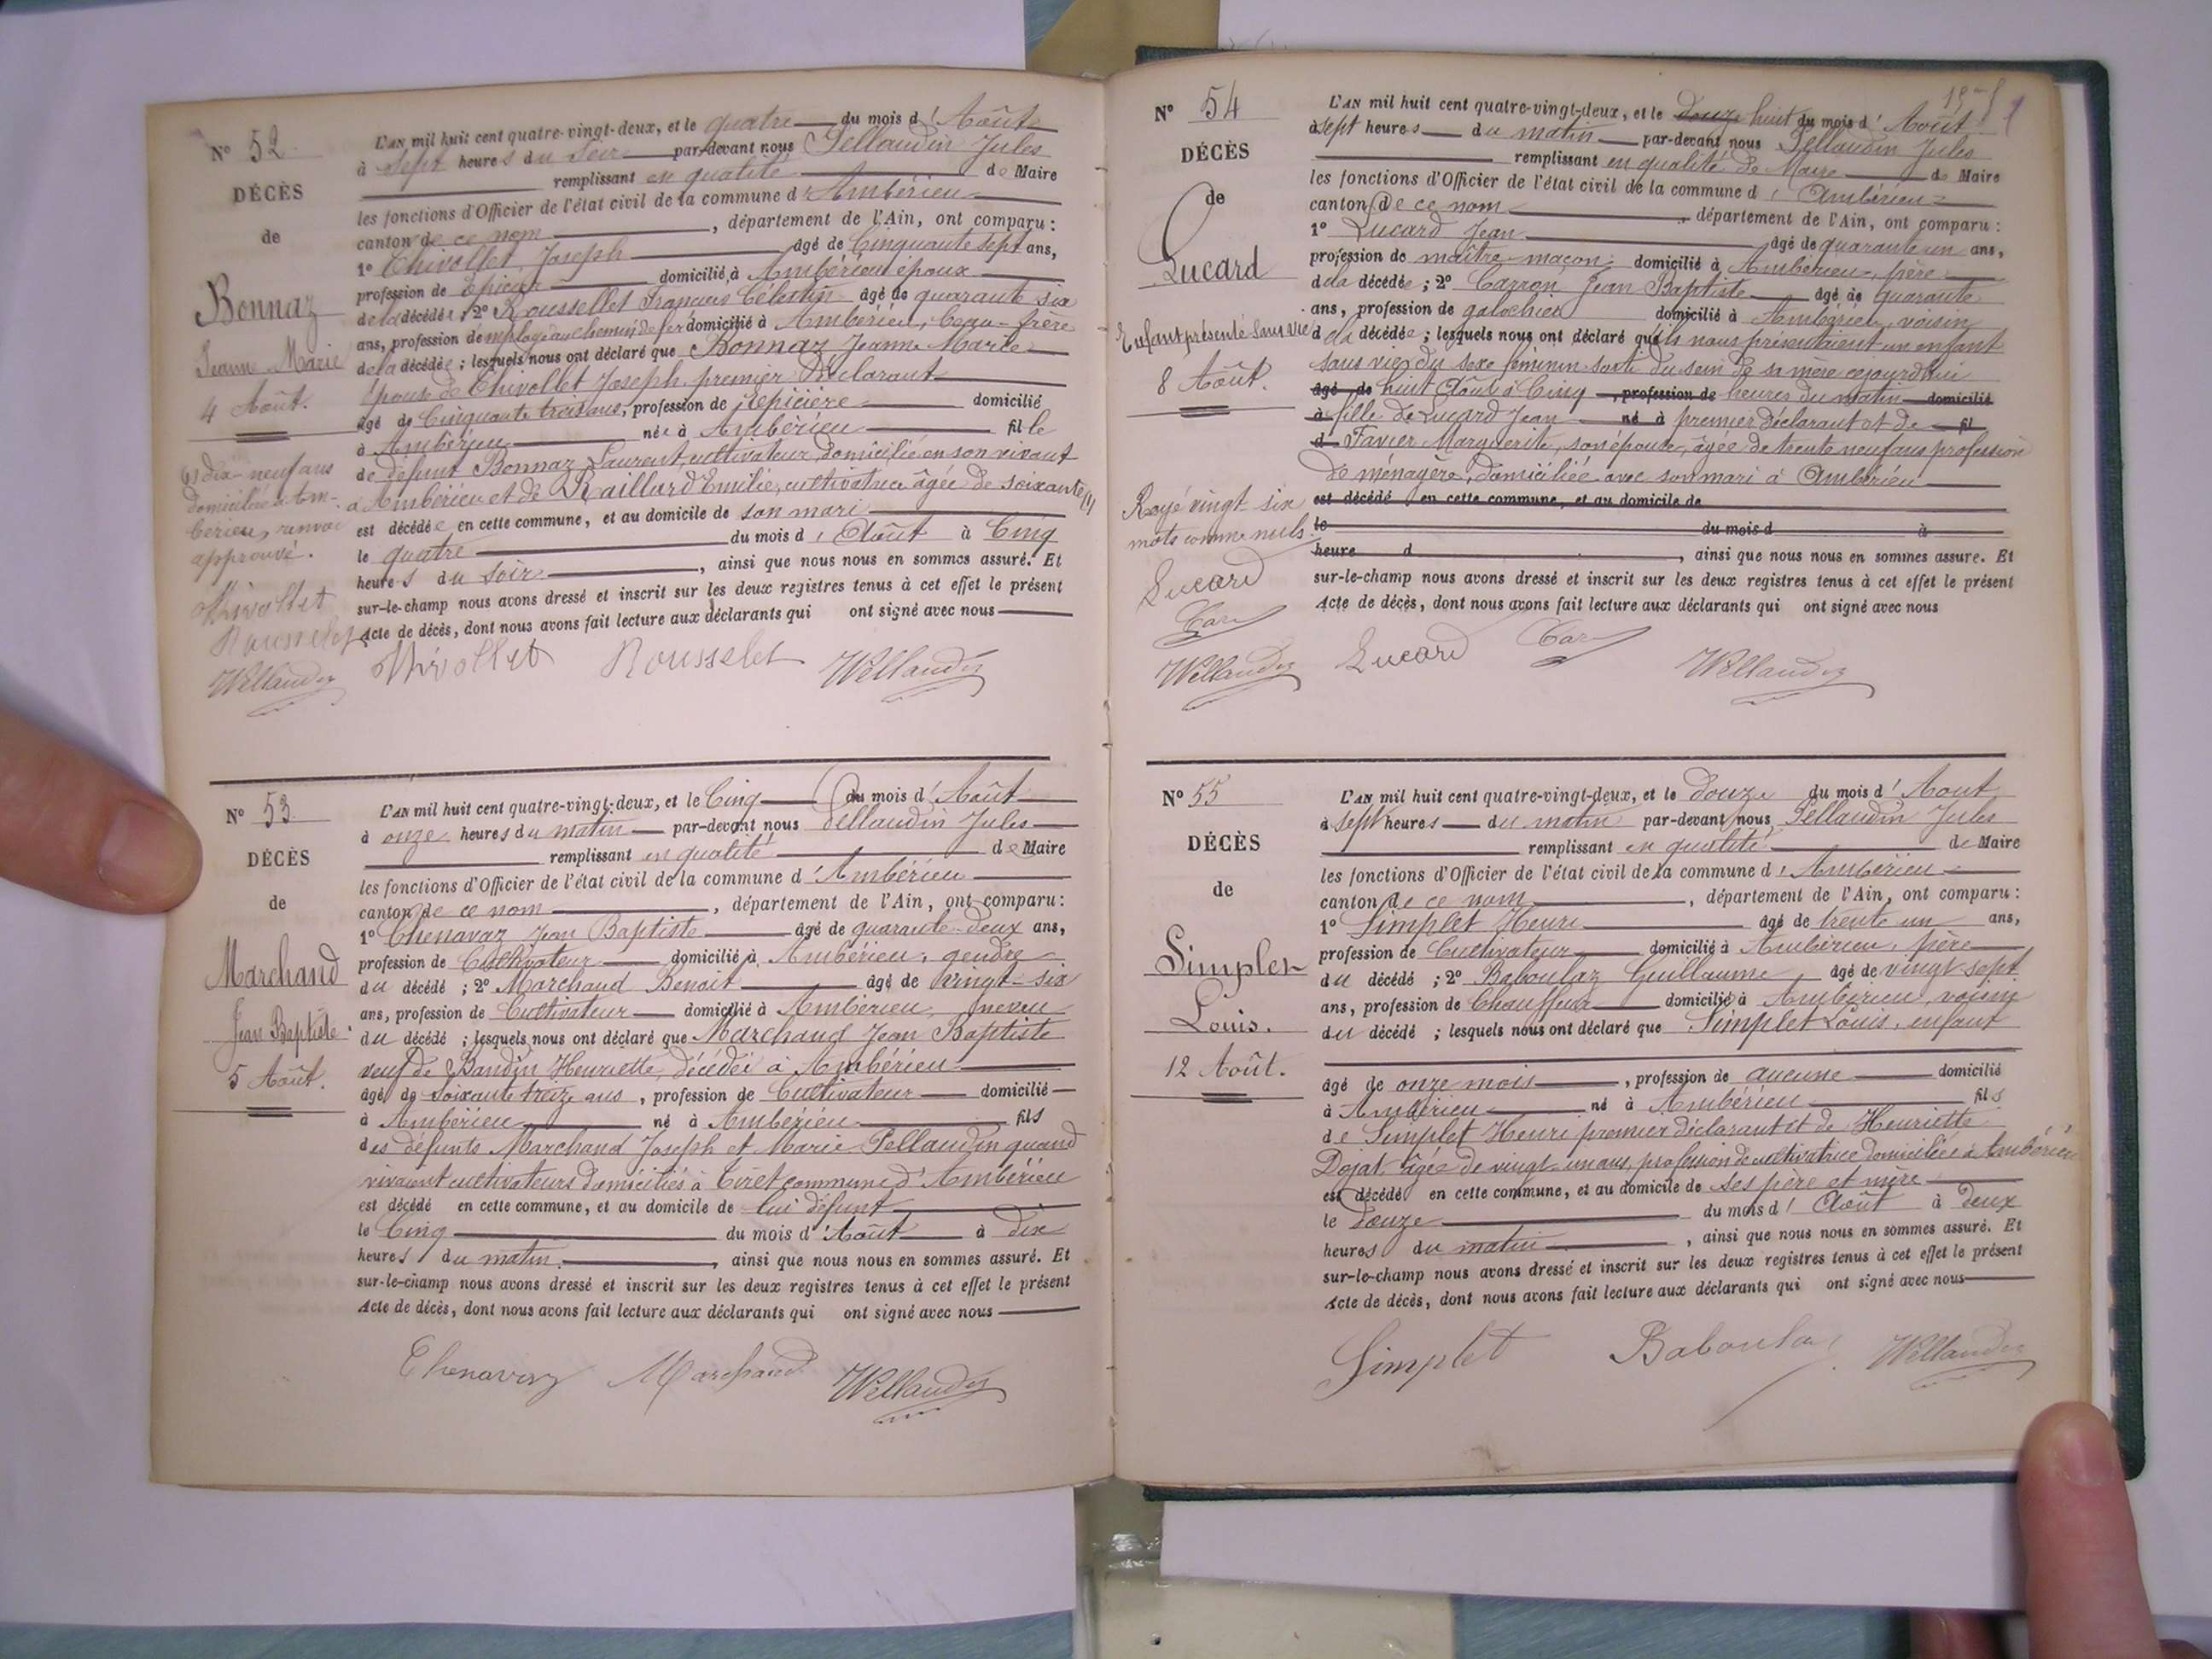 N° 52
DÉCÈS
de
Bonnaz
Jeanne Marie
4 Août.
(1) dix-neuf ans
domiciliée à Am-
bérieu, renvoi
approuvé.
Thivollet
Rousselet
L'AN mil huit cent quatre-vingt-deux, et le quatre du mois d'Août
à sept heures du soir par-devant nous Pellaudin Jules
remplissant en qualité de Maire
les fonctions d'Officier de l'état civil de la commune d'Ambérieu
canton de ce nom, département de l'Ain, ont comparu :
1° Thivollet Joseph âgé de Cinquante sept ans,
profession de Épicier domicilié à Ambérieu époux
de la décédée ; 2° Rousselet François Célestin âgé de quarante six
ans, profession d'employé au chemin de fer domicilié à Ambérieu, beau-frère
de la décédée ; lesquels nous ont déclaré que Bonnaz Jeanne Marie
épouse de Thivollet Joseph premier Déclarant
âgé de Cinquante trois ans, profession de épicière domicilié
à Ambérieu née à Ambérieu fille
de défunt Bonnaz Laurent, cultivateur, domicilié en son vivant
à Ambérieu et de Raillard Emilie, cultivatrice âgée de soixante (1)
est décédée en cette commune, et au domicile de son mari
le quatre du mois d'Août à Cinq
heures du soir, ainsi que nous nous en sommes assuré. Et
sur-le-champ nous avons dressé et inscrit sur les deux registres tenus à cet effet le présent
Acte de décès, dont nous avons fait lecture aux déclarants qui ont signé avec nous
Thivollet Rousselet
N° 53
DÉCÈS
de
Marchand
Jean Baptiste
5 Août.
L'AN mil huit cent quatre-vingt-deux, et le Cinq du mois d'Août
à onze heures du matin par-devant nous Pellaudin Jules
remplissant en qualité de Maire
les fonctions d'Officier de l'état civil de la commune d'Ambérieu
canton de ce nom, département de l'Ain, ont comparu :
1° Chenavaz Jean Baptiste âgé de quarante-deux ans,
profession de Cultivateur domicilié à Ambérieu, gendre
du décédé ; 2° Marchand Benoit âgé de vingt-six
ans, profession de Cultivateur domicilié à Ambérieu, neveu
du décédé ; lesquels nous ont déclaré que Marchand Jean Baptiste
veuf de Bandin Henriette, décédée à Ambérieu
âgé de soixante treize ans, profession de Cultivateur domicilié
à Ambérieu né à Ambérieu fils
des défunts Marchand Joseph et Marie Pellaudin quand
vivaient cultivateurs domiciliés à Tiret commune d'Ambérieu
est décédé en cette commune, et au domicile de lui défunt
le Cinq du mois d'Août à dix
heures du matin, ainsi que nous nous en sommes assuré. Et
sur-le-champ nous avons dressé et inscrit sur les deux registres tenus à cet effet le présent
Acte de décès, dont nous avons fait lecture aux déclarants qui ont signé avec nous
Chenavaz Marchand
N° 54
DÉCÈS
de
Lucard
Enfant présenté sans vie
8 Août.
Rayé vingt six
mots comme nuls.
Lucard
Car
L'AN mil huit cent quatre-vingt-deux, et le douze huit du mois d'Août
à sept heures du matin par-devant nous Pellaudin Jules
remplissant en qualité de Maire de Maire
les fonctions d'Officier de l'état civil de la commune d'Ambérieu
canton de ce nom, département de l'Ain, ont comparu :
1° Lucard Jean âgé de quarante un ans,
profession de maître-maçon domicilié à Ambérieu, père
de la décédée ; 2° Carron Jean Baptiste âgé de quarante
ans, profession de galochier domicilié à Ambérieu, voisin
de la décédée ; lesquels nous ont déclaré qu'ils nous présentaient un enfant
sans vie, du sexe féminin sorti du sein de sa mère cejourd'hui
âgé de huit Août à Cinq, profession de heures du matin domicilié
à fille de Lucard Jean né à premier déclarant et de fil
d Favier Marguerite, son épouse, âgée de trente neuf ans profession
de ménagère, domiciliée avec son mari à Ambérieu
est décédé en cette commune, et au domicile de
le du mois d à
heure d, ainsi que nous nous en sommes assuré. Et
sur-le-champ nous avons dressé et inscrit sur les deux registres tenus à cet effet le présent
Acte de décès, dont nous avons fait lecture aux déclarants qui ont signé avec nous
Lucard Car
N° 55
DÉCÈS
de
Simplet
Louis.
12 Août.
L'AN mil huit cent quatre-vingt-deux, et le douze du mois d'Août
à sept heures du matin par-devant nous Pellaudin Jules
remplissant en qualité de Maire
les fonctions d'Officier de l'état civil de la commune d'Ambérieu
canton de ce nom, département de l'Ain, ont comparu :
1° Simplet Henri âgé de trente un ans,
profession de Cultivateur domicilié à Ambérieu, père
du décédé ; 2° Baboulaz Guillaume âgé de vingt sept
ans, profession de Chauffeur domicilié à Ambérieu, voisin
du décédé ; lesquels nous ont déclaré que Simplet Louis, enfant
âgé de onze mois, profession de aucune domicilié
à Ambérieu né à Ambérieu fils
de Simplet Henri premier déclarant et de Henriette
Dojat, âgée de vingt-un ans, profession de cultivatrice domiciliée à Ambérieu
est décédé en cette commune, et au domicile de ses père et mère
le douze du mois d'Août à deux
heures du matin, ainsi que nous nous en sommes assuré. Et
sur-le-champ nous avons dressé et inscrit sur les deux registres tenus à cet effet le présent
Acte de décès, dont nous avons fait lecture aux déclarants qui ont signé avec nous
Simplet Baboulaz